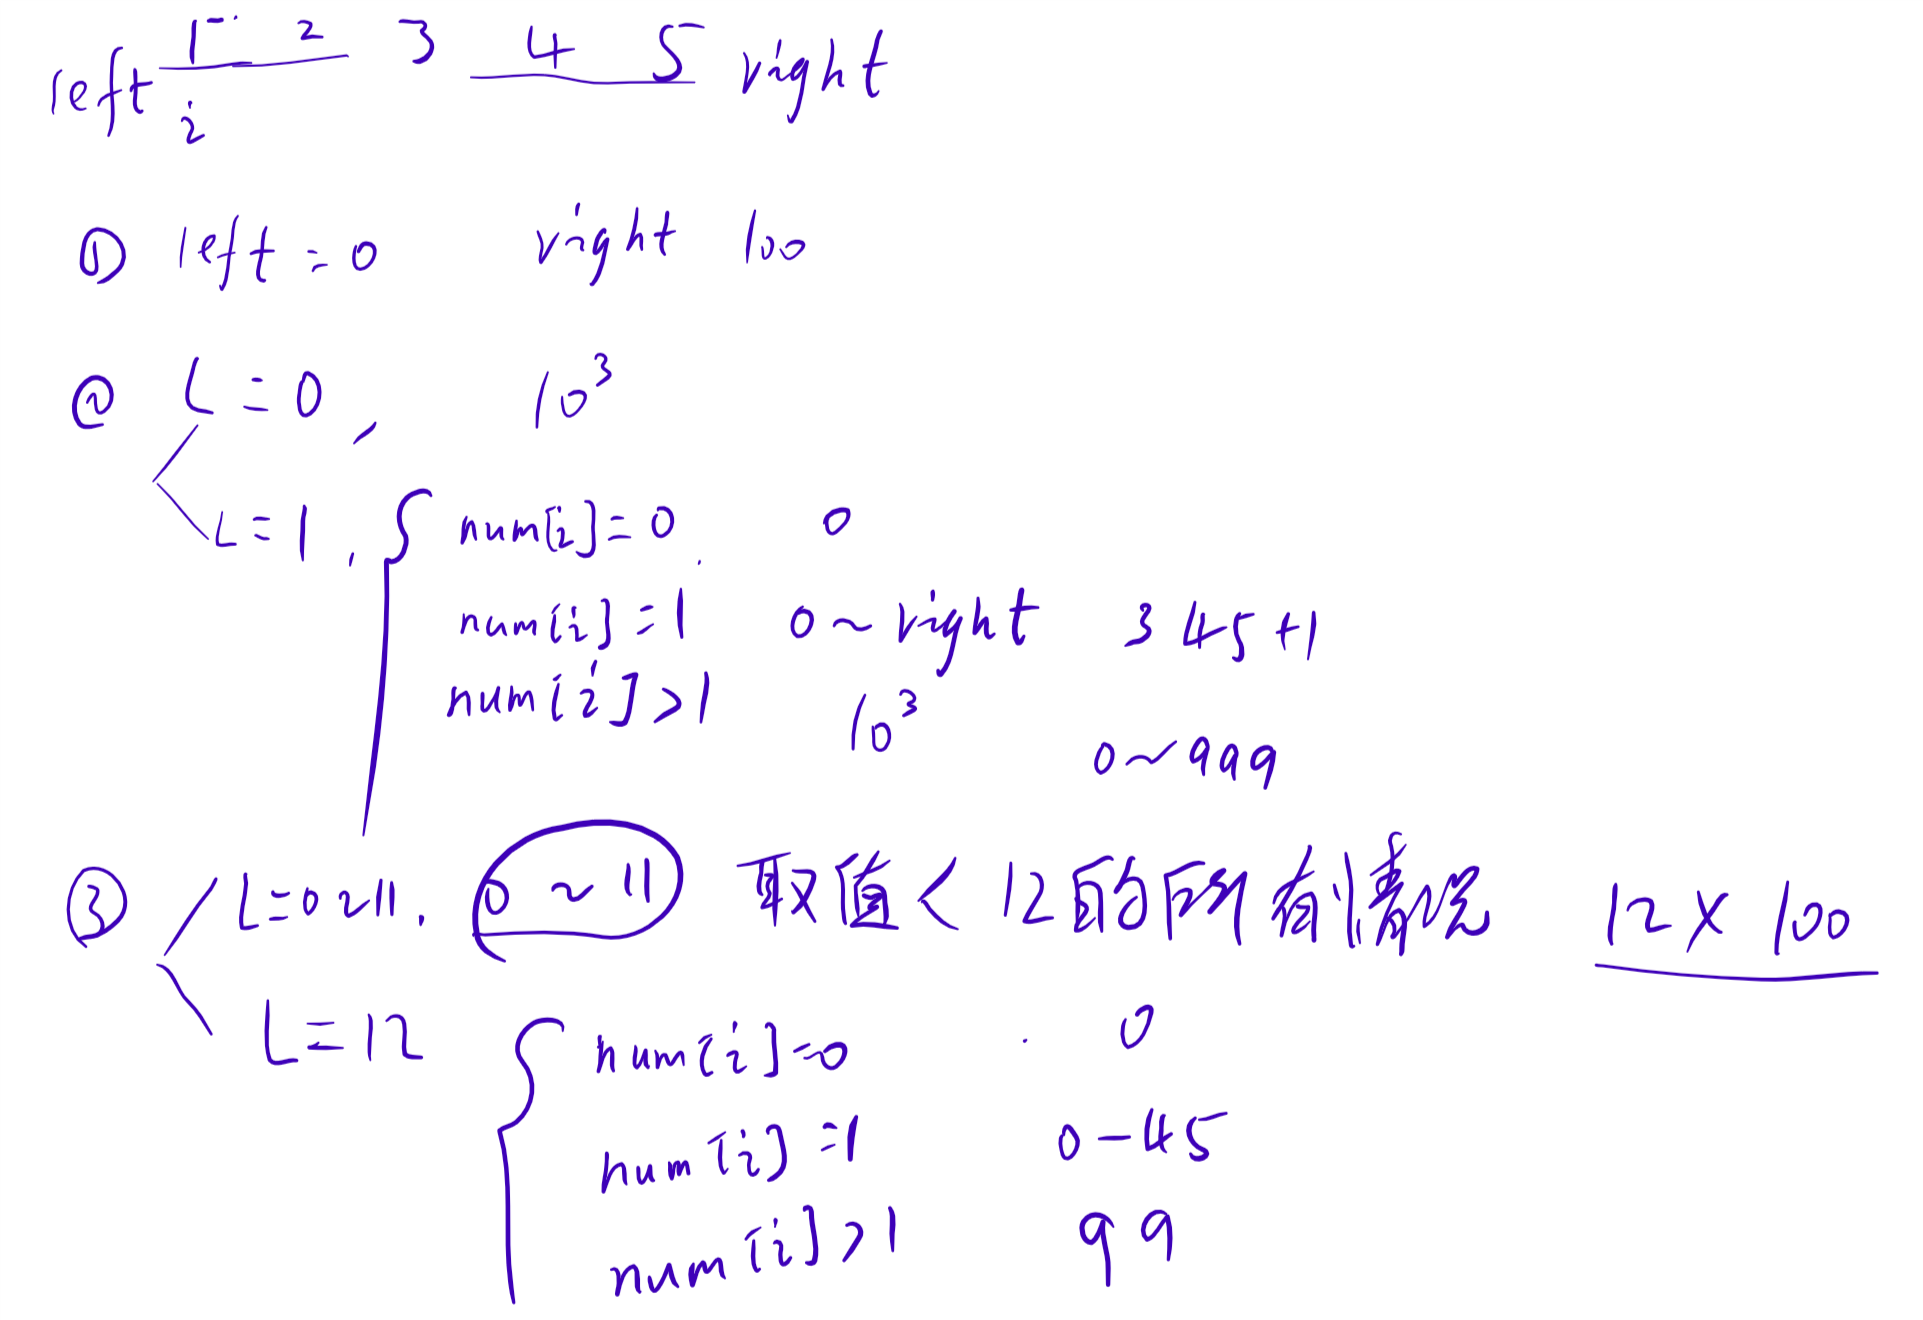 left 1 2 3 4 5 right
i
① left = 0 right 100
② L = 0, 10³
L = 1, num[i] = 0 0
num[i] = 1 0 ~ right 345+1
num[i] > 1 10³
0 ~ 999
③ L = 0 ~ 11, 0 ~ 11 取值 < 12的所有情况 12 × 100
L = 12 num[i] = 0 0
num[i] = 1 0 - 45
num[i] > 1 99